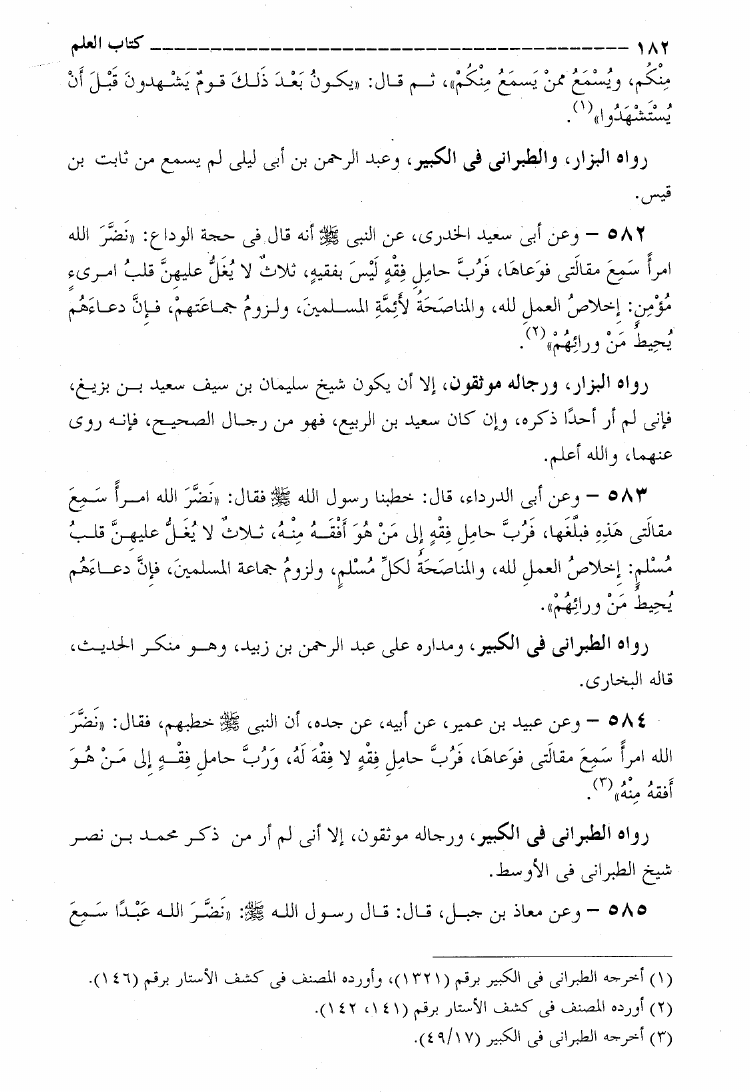 ١٨٢ ـــــــــــــــــــــــــــــــــــــــــــــــــــــــــــــ كتاب العلم
مِنْكُم، ويُسْمَعُ ممنْ يَسمَعُ مِنْكُمْ»، ثـم قـال: «يكـونُ بَعْـدَ ذَلـكَ قـومٌ يَشْـهدونَ قَبْـلَ أنْ
يُسْتَشْهَدُوا»(١).
رواه البزار، والطبرانى فى الكبير، وعبد الرحمن بن أبى ليلى لم يسمع من ثابت بن
قيس.
٥٨٢ – وعن أبى سعيد الخدرى، عن النبى ﷺ أنه قال فى حجة الوداع: «نَضَّرَ الله
امرأً سَمِعَ مقالَتى فوَعاهَا، فَرُبَّ حاملِ فِقْهٍ لَيْسَ بفقيهٍ، ثلاثٌ لا يُغَلُّ عليهنَّ قلبُ امرىءٍ
مُؤْمنٍ: إخلاصُ العملِ لله، والمناصَحَةُ لأئِمَّةِ المسـلمينَ، ولـزومُ جمـاعَتهمْ، فـإنَّ دعـاءَهُم
يُحيطُ مَنْ ورائِهُمْ»(٢).
رواه البزار، ورجاله موثقون، إلا أن يكون شيخ سليمان بن سيف سعيد بـن بزيغ،
فإنى لم أر أحدًا ذكره، وإن كان سعيد بن الربيع، فهو من رجـال الصحيح، فإنـه روى
عنهما، والله أعلم.
٥٨٣ – وعن أبى الدرداء، قال: خطبنا رسول الله ﷺ فقال: «نَضَّرَ الله امـرأً سَـمِعَ
مقالَتى هَذِهِ فبلَّغَها، فَرُبَّ حاملِ فِقْهٍ إلى مَنْ هُوَ أَفْقَـهُ مِنْـهُ، ثـلاثٌ لا يُغَـلُّ عليهـنَّ قلـبُ
مُسْلمٍ: إخلاصُ العملِ لله، والمناصَحَةُ لكلِّ مُسْلمٍ، ولزومُ جماعة المسلمينَ، فإنَّ دعـاءَهُم
يُحيطُ مَنْ ورائِهُمْ».
رواه الطبرانى فى الكبير، ومداره على عبد الرحمن بن زبيد، وهـو منكـر الحديـث،
قاله البخارى.
٥٨٤ – وعن عبيد بن عمير، عن أبيه، عن جده، أن النبى ﷺ خطبهم، فقال: «نَضَّرَ
الله امرأً سَمِعَ مقالَتى فوَعاهَا، فَرُبَّ حاملِ فِقْهٍ لا فِقْهَ لَهُ، وَرُبَّ حاملِ فِقْـهٍ إلى مَـنْ هُـوَ
أفقهُ مِنْهُ»(٣).
رواه الطبرانى فى الكبير، ورجاله موثقون، إلا أنى لم أر من ذكر محمد بـن نصـر
شيخ الطبرانى فى الأوسط.
٥٨٥ – وعن معاذ بن جبـل، قـال: قـال رسـول اللـه ﷺ: «نَضَّـرَ اللـه عَبْـدًا سَـمِعَ
(١) أخرجه الطبرانى فى الكبير برقم (١٣٢١)، وأورده المصنف فى كشف الأستار برقم (١٤٦).
(٢) أورده المصنف فى كشف الأستار برقم (١٤١، ١٤٢).
(٣) أخرجه الطبرانى فى الكبير (٤٩/١٧).